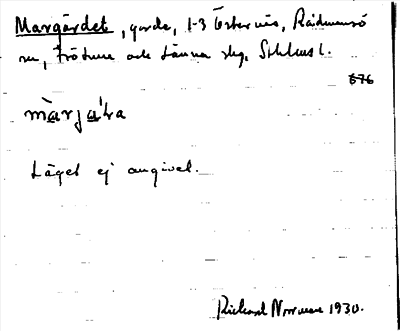 Margärdet, gärde, 1-3 Östernäs, Rådmansö
sn, Frötuna och Länna skg, Sthlms l.
676
màrja`ḷa
Läget ej angivet.
Rickard Norrman 1930.